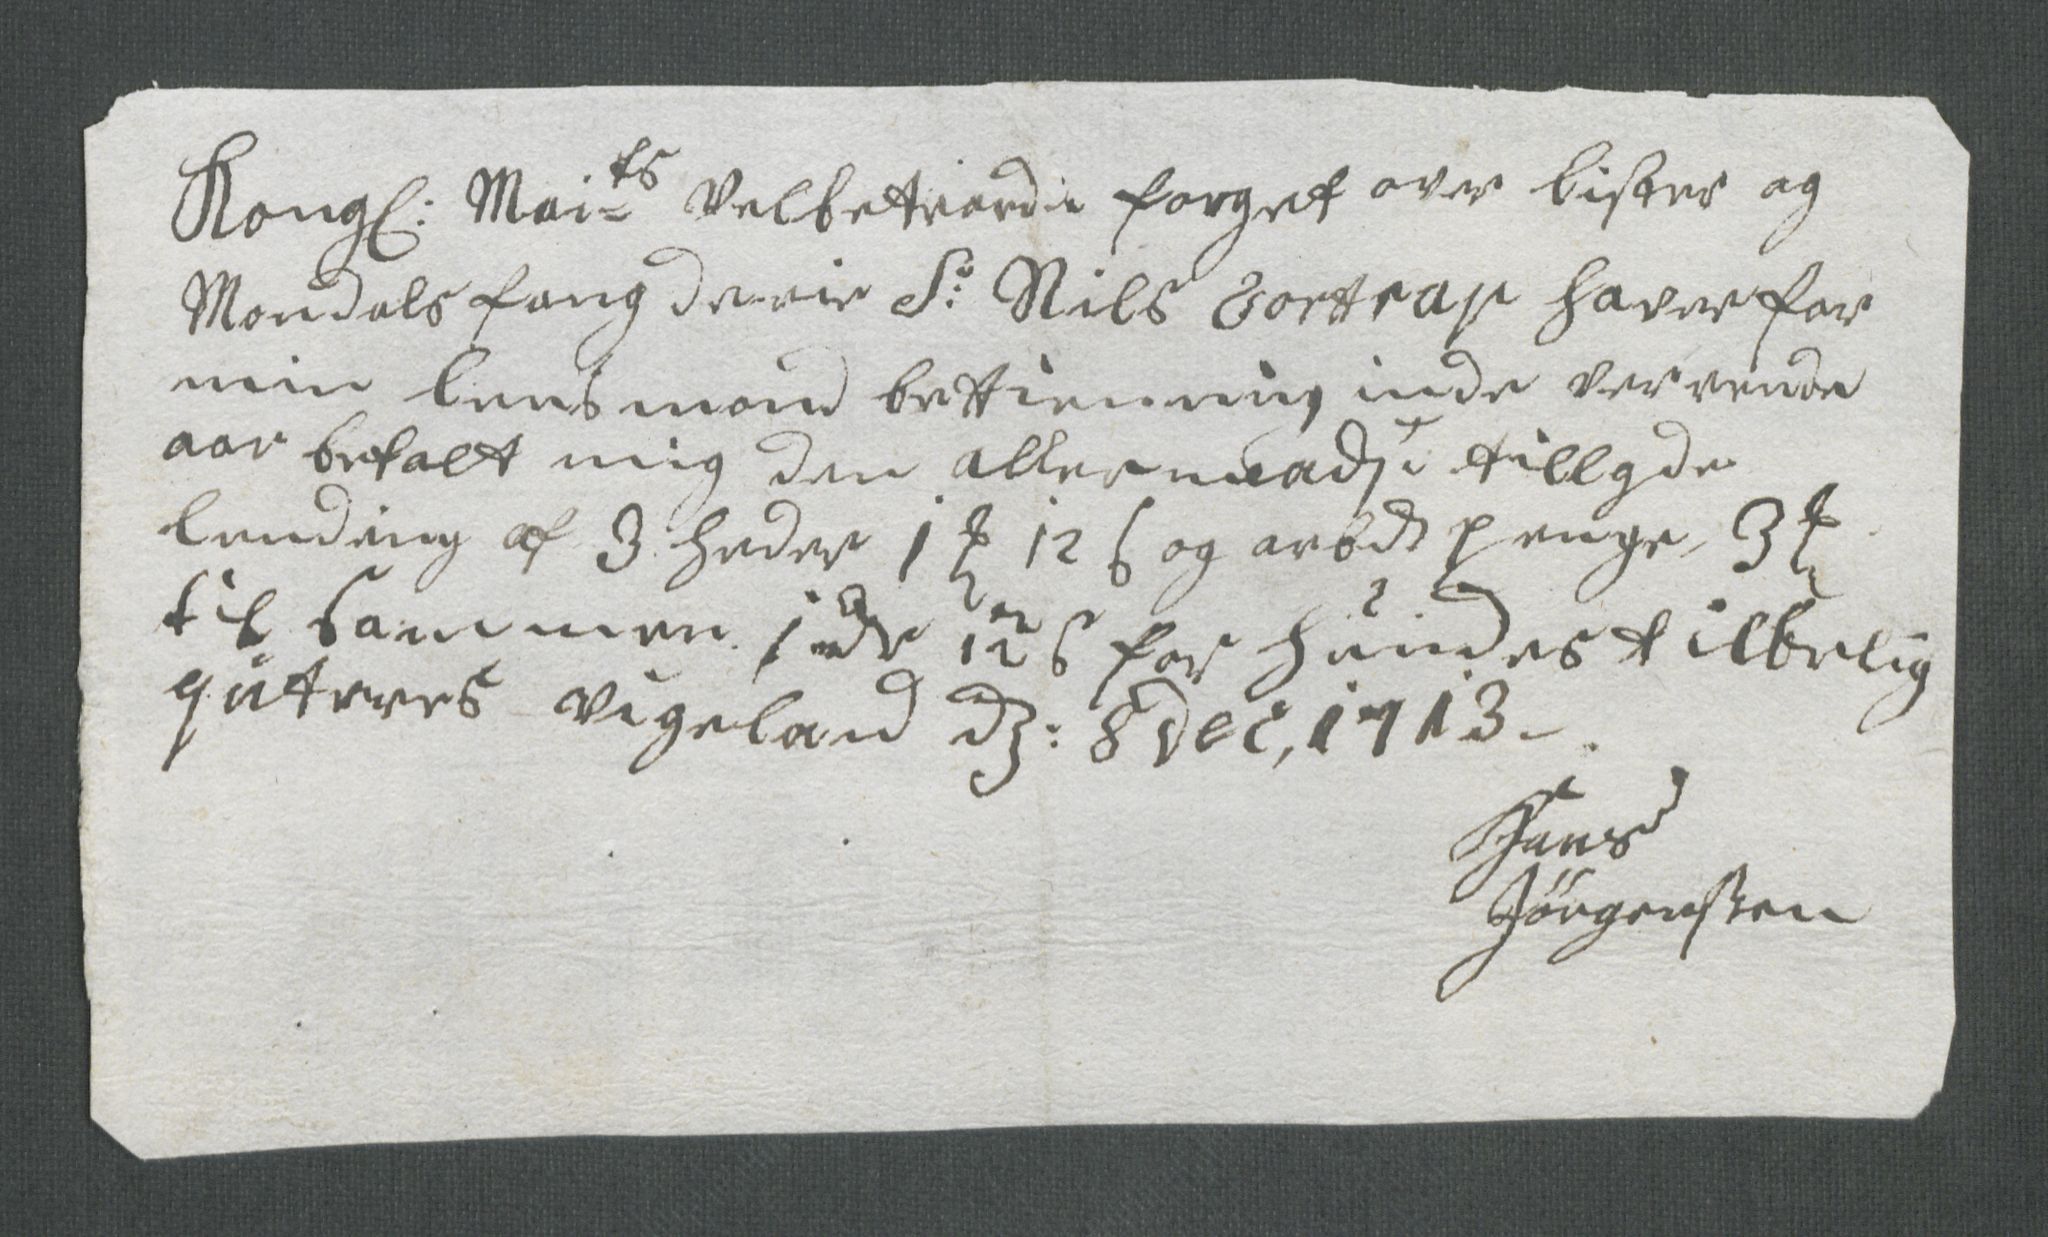 Kongl: Mai:ts Velbetroede foget over Lister og
Mandals fougderie Sr: Nils Tortrup haver for
min Lensmand bettienning inde verrende
aar betalt mig den aller naadst tillgde
lending af 3 heder 1 12 s og arbds penge 3
til sammen 12 s for hundes tilbelig
quiteres Vigeland d: 8 Dec, 1713
Hans
Jörgensten